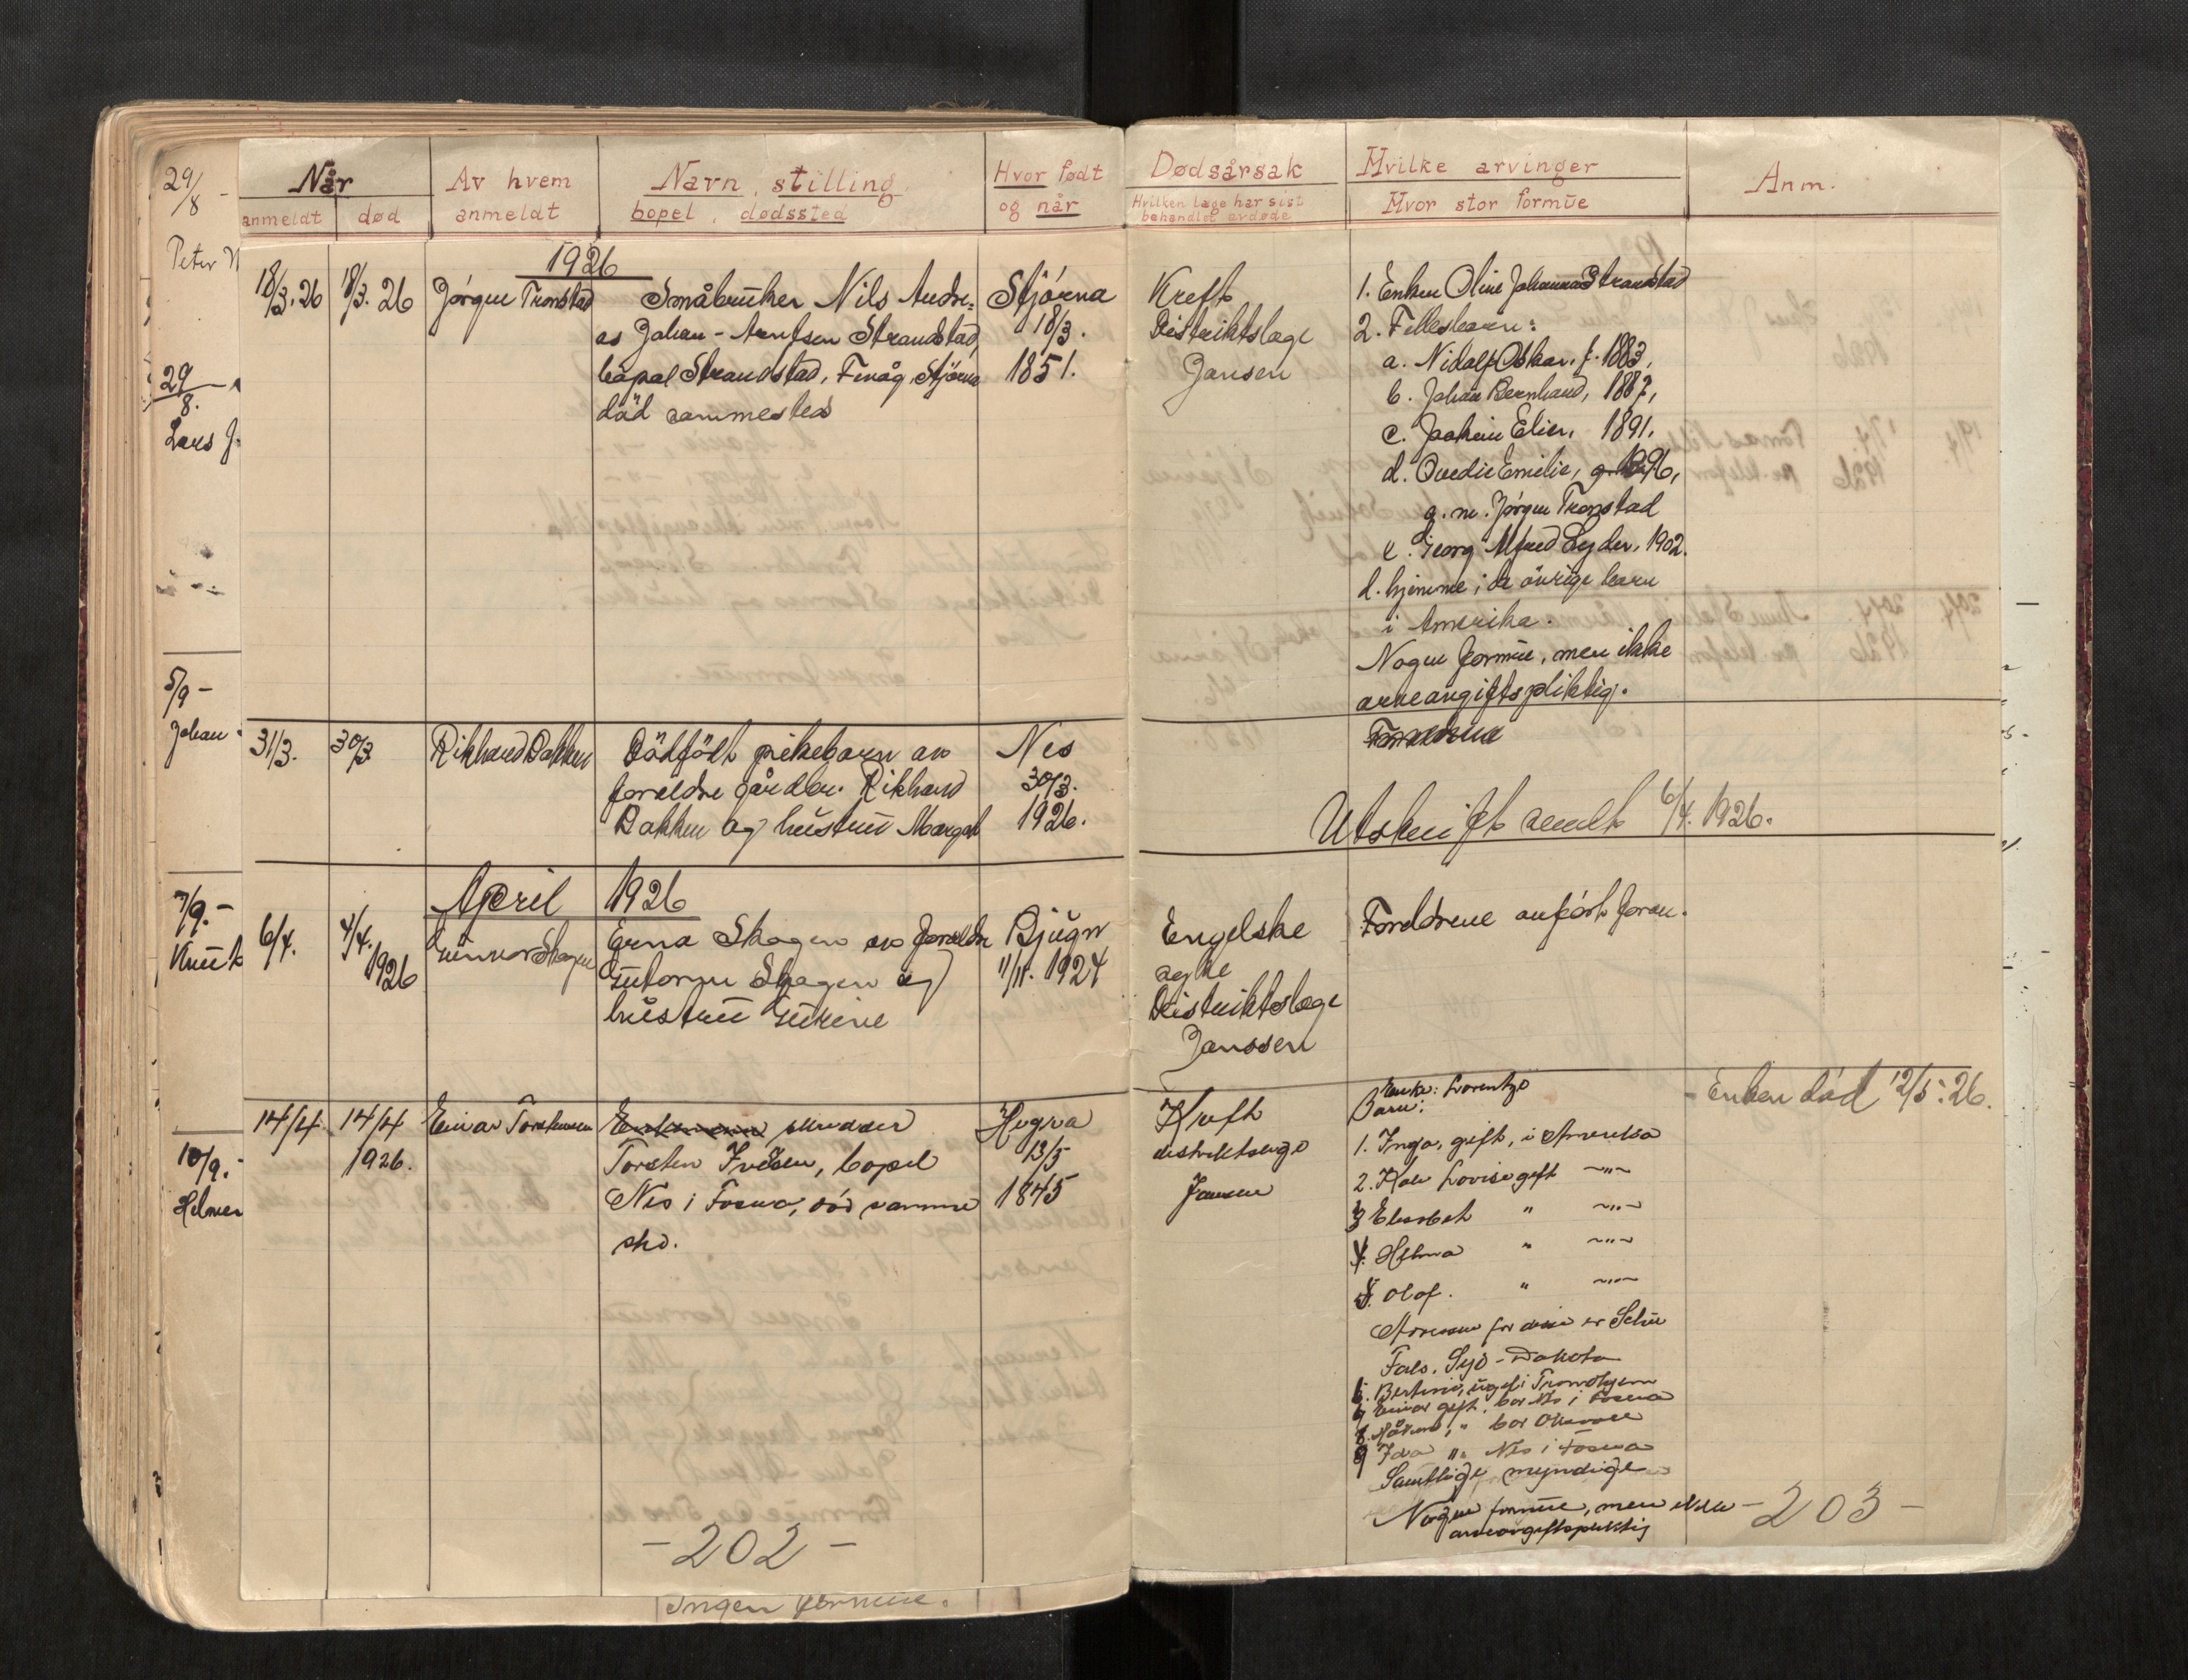 29/8 -
Peter
29/8. -
Lars J.
5/9 -
Johan
7/9. -
Knut
10/9. -
Helmer
Når
anmeldt
død
Av hvem
anmeldt
Navn, stilling,
bopel, dødssted
Hvor født
og når
1926
18/3. 26
18/3. 26
Jørgen Tronstad
Småbruker Nils Andre-
as Johan-Arntsen Strandstad,
bopæl Strandstad, Fevåg, Stjørna
död sammesteds
Stjørna
18/3.
1851.
31/3.
30/3
Rikhard Bakken
Dödfödt pikebarn av
foreldre gårdbr. Rikhard
Bakken og hustru Margit
Nes
30/3.
1926.
April 1926
6/4.
4/4.
1926
Gunnar Skagen
Erna Skagen av foreldre
Gutorm Skagen og
hustru Gurine
Bjugn
11/11. 1924
14/4.
14/4
1926.
Einar Torstensen
Enkemann skredder
Torsten Iversen, bopel
Nes i Fosna, död samme
sted.
Hegra
13/5
1845
- 202 -
Ingen formue.
Dødsårsak
Hvilken læge har sist
behandlet avdøde
Hvilke arvinger
Hvor stor formue
Anm.
Kreft
Distriktslæge
Jansen
1. Enken Oline Johanna Strandstad
2. Fellesbarn:
a. Nidolf Oskar, f. 1883,
b. Johan Bernhard, 1887,
c. Joakim Elier, 1891.
d. Ovedie Emilie, 1896,
g. m. Jørgen Tronstad
e. Georg Alfred Leyder, 1902.
d. hjemme; de övrige barn
i Amerika.
Nogen formue, men ikke
arveavgiftspliktig.
Foreldrene
Utskrift sendt 6/4. 1926.
Engelske
syke
Distriktslæge
Janssen
Foreldrene anført foran.
Kreft
distriktslæge
Jansen
Enke: Lorentze
Barn:
1. Inga, gift, i Amerika
2. Kale Lovise gift -"-
3 Elisabet " -"-
4. Helma " -"-
5. Olaf. " -"-
Adressen for disse er Schu
Fals, Syd-Dakota
6. Bertine, ugift i Trondhjem
7 Einar gift, bor Nes i Fosna
8. Håkon, " bor
9 Ida " Nes i Fosna
Samtlige myndige
Nogen formue, men ikke
arveavgiftspliktig
- Enken död 12/5. 26.
- 203 -